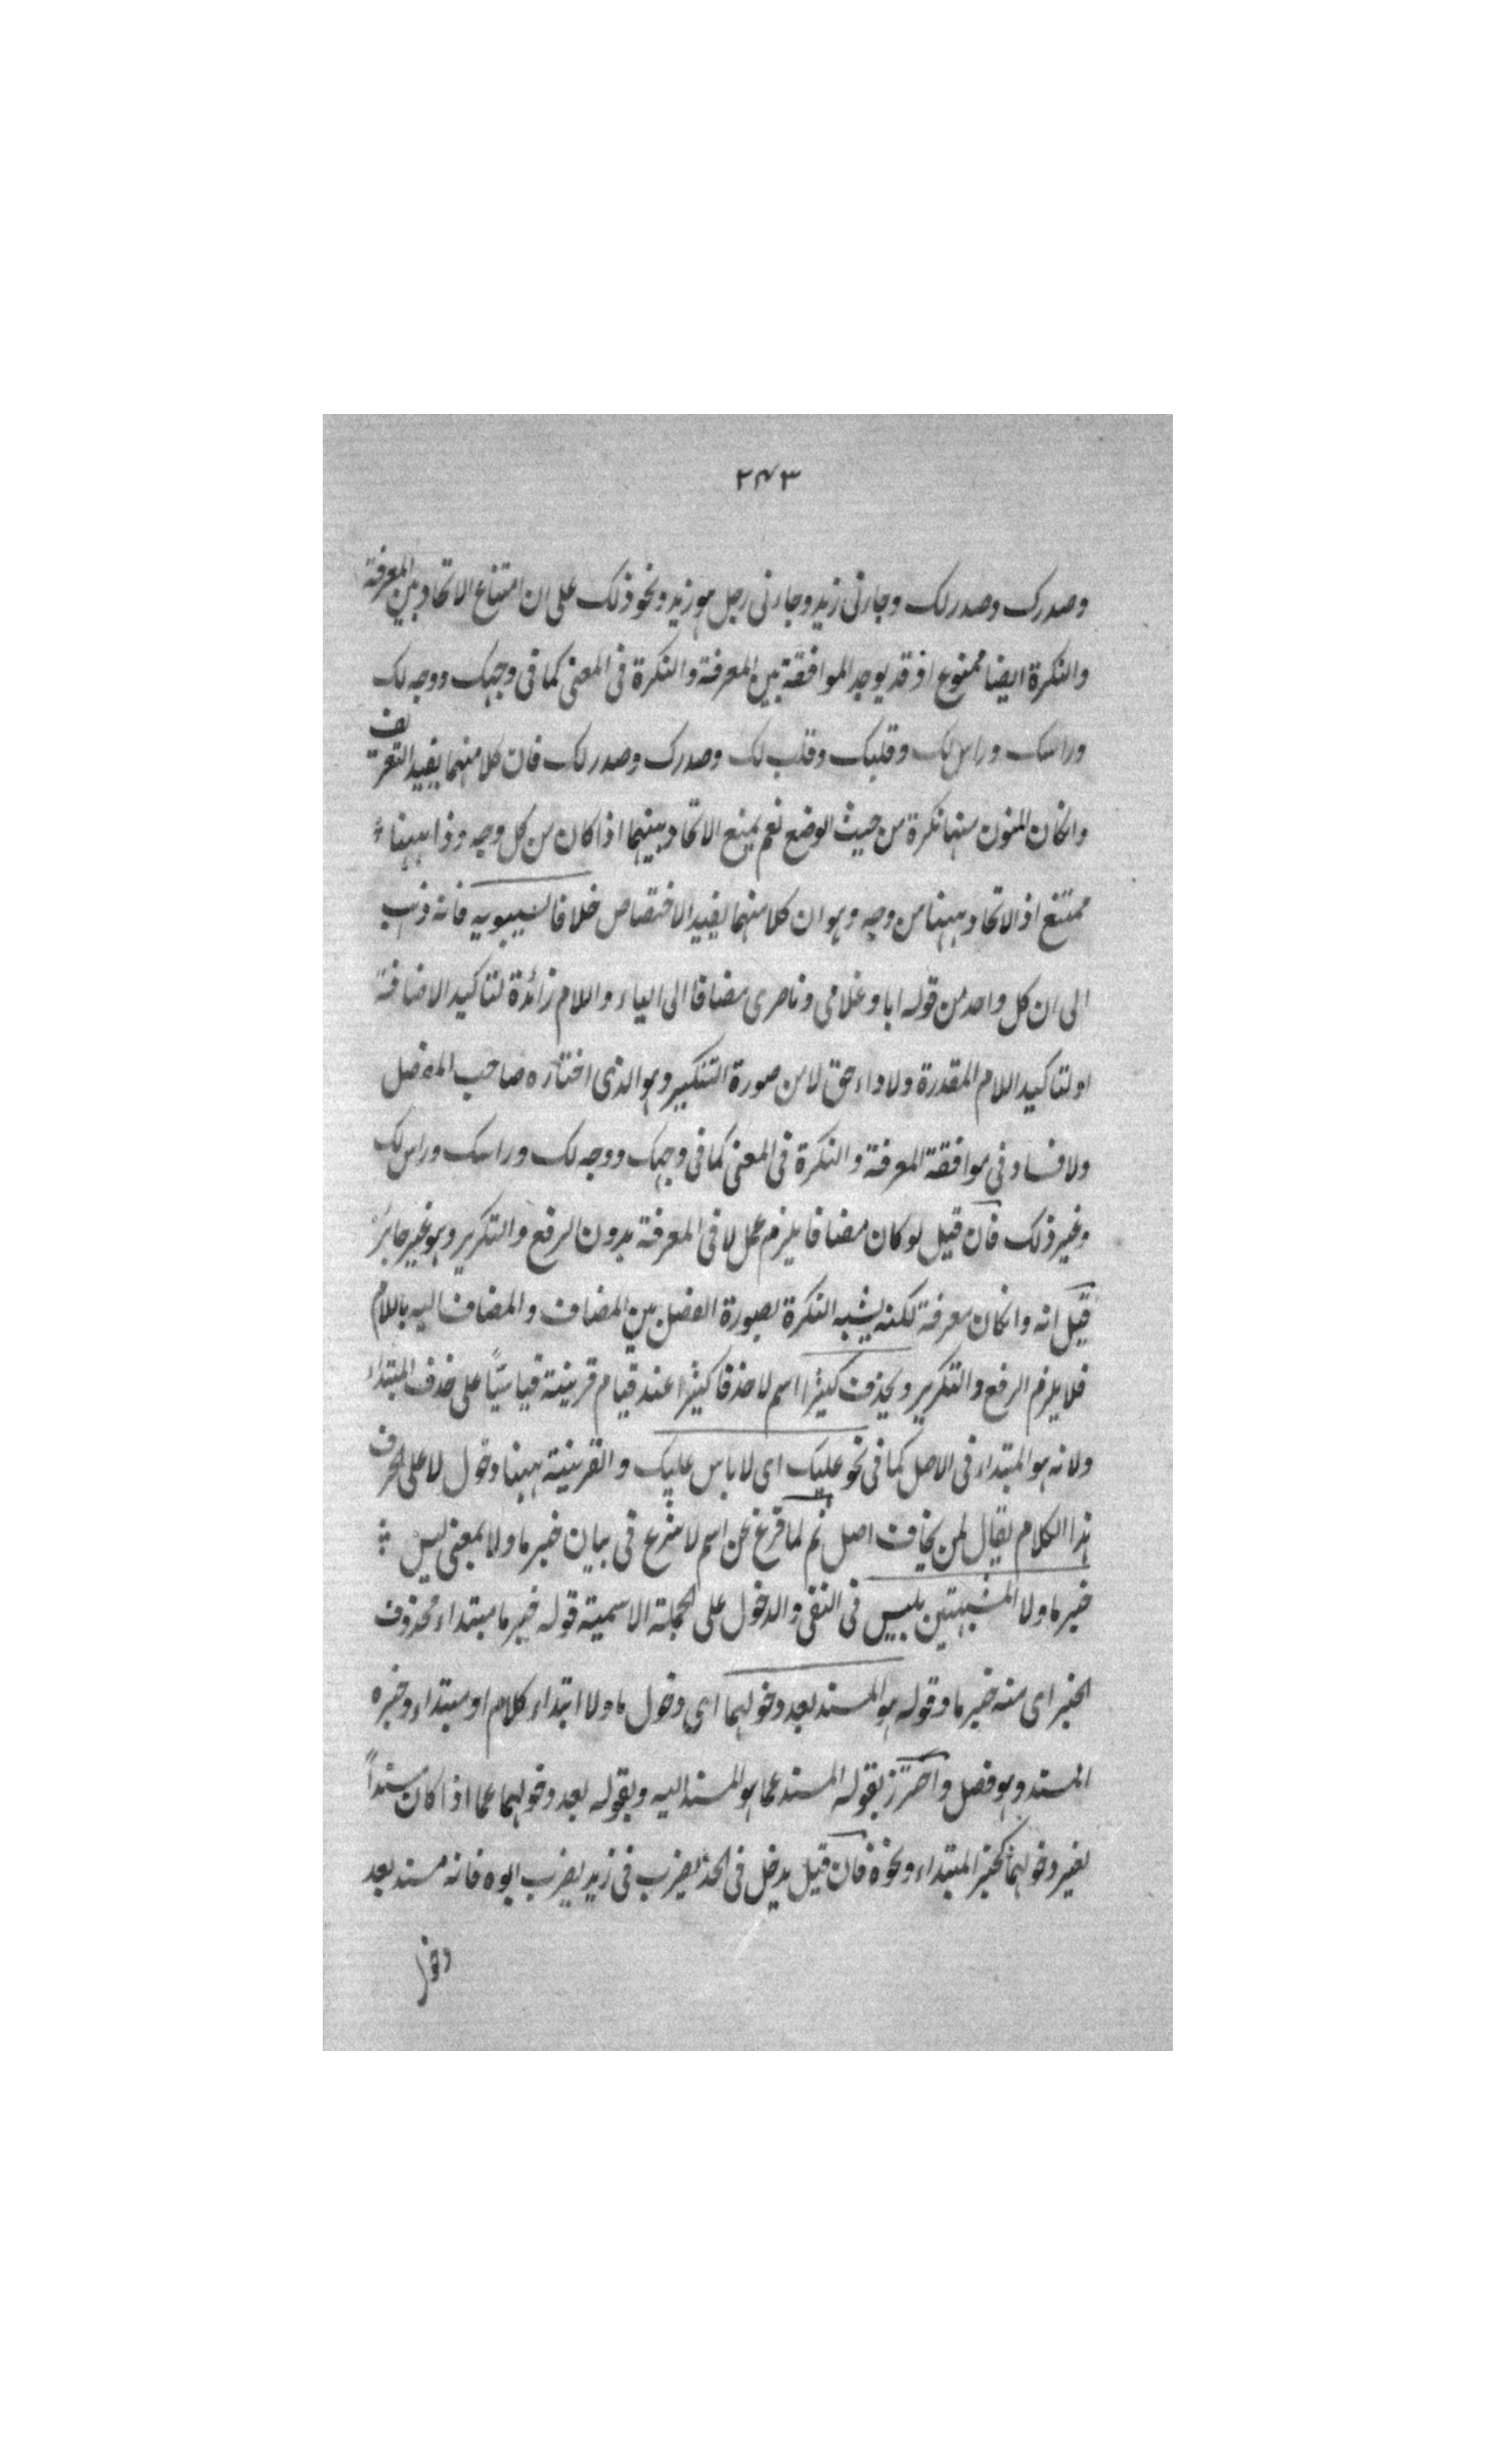 ٢٤٣
وصدرك وصدر لك وجاءنى زيد وجاءنى رجل هو زيد ونحو ذلك على ان امتناع الاتحاد بين المعرفة
والنكرة ايضا ممنوع اذ قد يوجد الموافقة بين المعرفة والنكرة فى المعنى كما فى وجهك ووجه لك
وراسك وراس لك وقلبك وقلب لك وصدرك وصدر لك فان كلا منهما يفيد التعريف
وانكان المنون منهما نكرة من حيث الوضع نعم يمنع الاتحاد بينهما اذا كان من كل وجه وذا ههنا
ممتنع اذ الاتحاد ههنا من وجه وهو ان كلا منهما يفيد الاختصاص خلافا لسيبويه فانه ذهب
الى ان كل واحد من قوله ابا وغلامى وناصرى مضافا الى الياء واللام زائدة لتاكيد الاضافة
او لتاكيد اللام المقدرة ولاداء حق لا من صورة التنكير وهو الذى اختاره صاحب المفصل
ولا فساد فى موافقة المعرفة والنكرة فى المعنى كما فى وجهك ووجه لك وراسك وراس لك
وغير ذلك فان قيل لو كان مضافا يلزم عمل لا فى المعرفة بدون الرفع والتكرير وهو غير جائز
قيل انه وانكان معرفة لكنه يشبه النكرة بصورة الفصل بين المضاف والمضاف اليه باللام
فلا يلزم الرفع والتكرير ويحذف كثيرا اسم لا حذفا كثيرا عند قيام قرينة قياسيًا على حذف المبتداء
ولانه هو المبتداء فى الاصل كما فى نحو عليك اى لا باس عليك والقرينة ههنا دخول لا على الحرف
هذا الكلام يقال لمن يخاف اصل ثم لما فرغ عن اسم لا شرع فى بيان خبر ما ولا بمعنى ليس
خبر ما ولا المشبهتين بليس فى النفى والدخول على الجملة الاسمية قوله خبر ما مبتداء محذوف
الخبر اى منه خبر ما وقوله هو المسند بعد دخولهما اى دخول ما ولا ابتداء كلام او مبتداء وخبره
المسند وهو فصل واحترز بقوله المسند عما هو المسند اليه وبقوله بعد دخولهما عما اذا كان مسنداً
بغير دخولهما كخبر المبتداء ونحوه فان قيل يدخل فى الحد يضرب فى زيد يضرب ابوه فانه مسند بعد
دخول